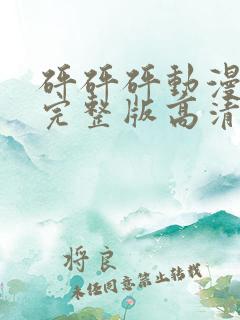 砰砰砰動漫
完整版高清
将良
未经同意禁止转载